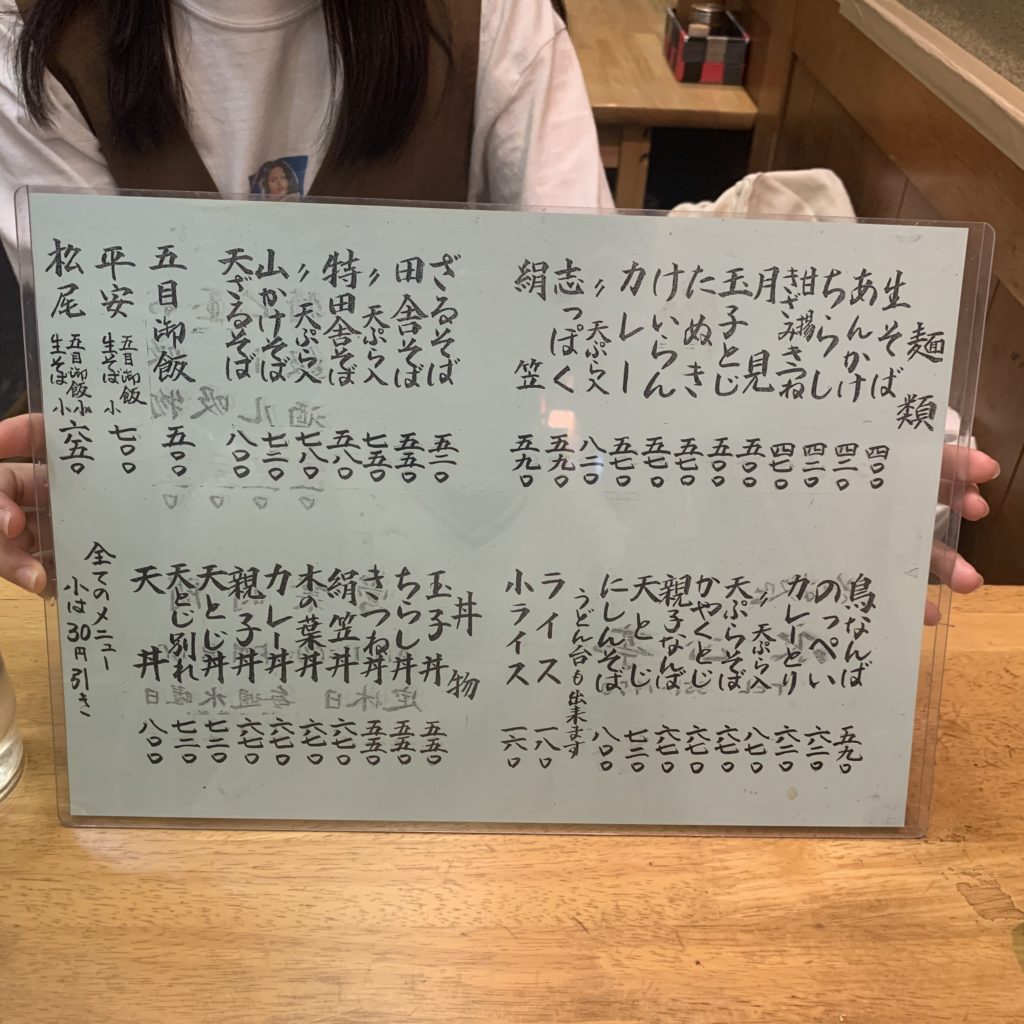 麺類
生そば 四〇〇
あんかけ 四二〇
ちらし 四二〇
甘揚きざみきつね 四七〇
月見 五〇〇
玉子とじ 五〇〇
たぬき 五七〇
けいらん 五七〇
カレー 五七〇
〃 天ぷら入 八二〇
志っぽく 五九〇
絹笠 五九〇
鳥なんば 五九〇
のっぺい 六二〇
カレーとり 六二〇
〃 天ぷら入 八七〇
天ぷらそば 六七〇
かやくとじ 六七〇
親子なんば 六七〇
天とじ 七二〇
にしんそば 八〇〇
うどん台も出来ます
ライス 一八〇
小ライス 一六〇
ざるそば 五二〇
田舎そば 五五〇
〃 天ぷら入 七五〇
特田舎そば 五八〇
〃 天ぷら入 七八〇
山かけそば 七二〇
天ざるそば 八〇〇
五目御飯 五〇〇
平安 五目御飯 生そば小 七〇〇
松尾 五目御飯小 生そば小 六五〇
丼物
玉子丼 五五〇
ちらし丼 五五〇
きつね丼 五五〇
絹笠丼 六七〇
木の葉丼 六七〇
カレー丼 六七〇
親子丼 六七〇
天とじ丼 七二〇
天とじ別れ 七二〇
天丼 八〇〇
全てのメニュー
小は30円引き